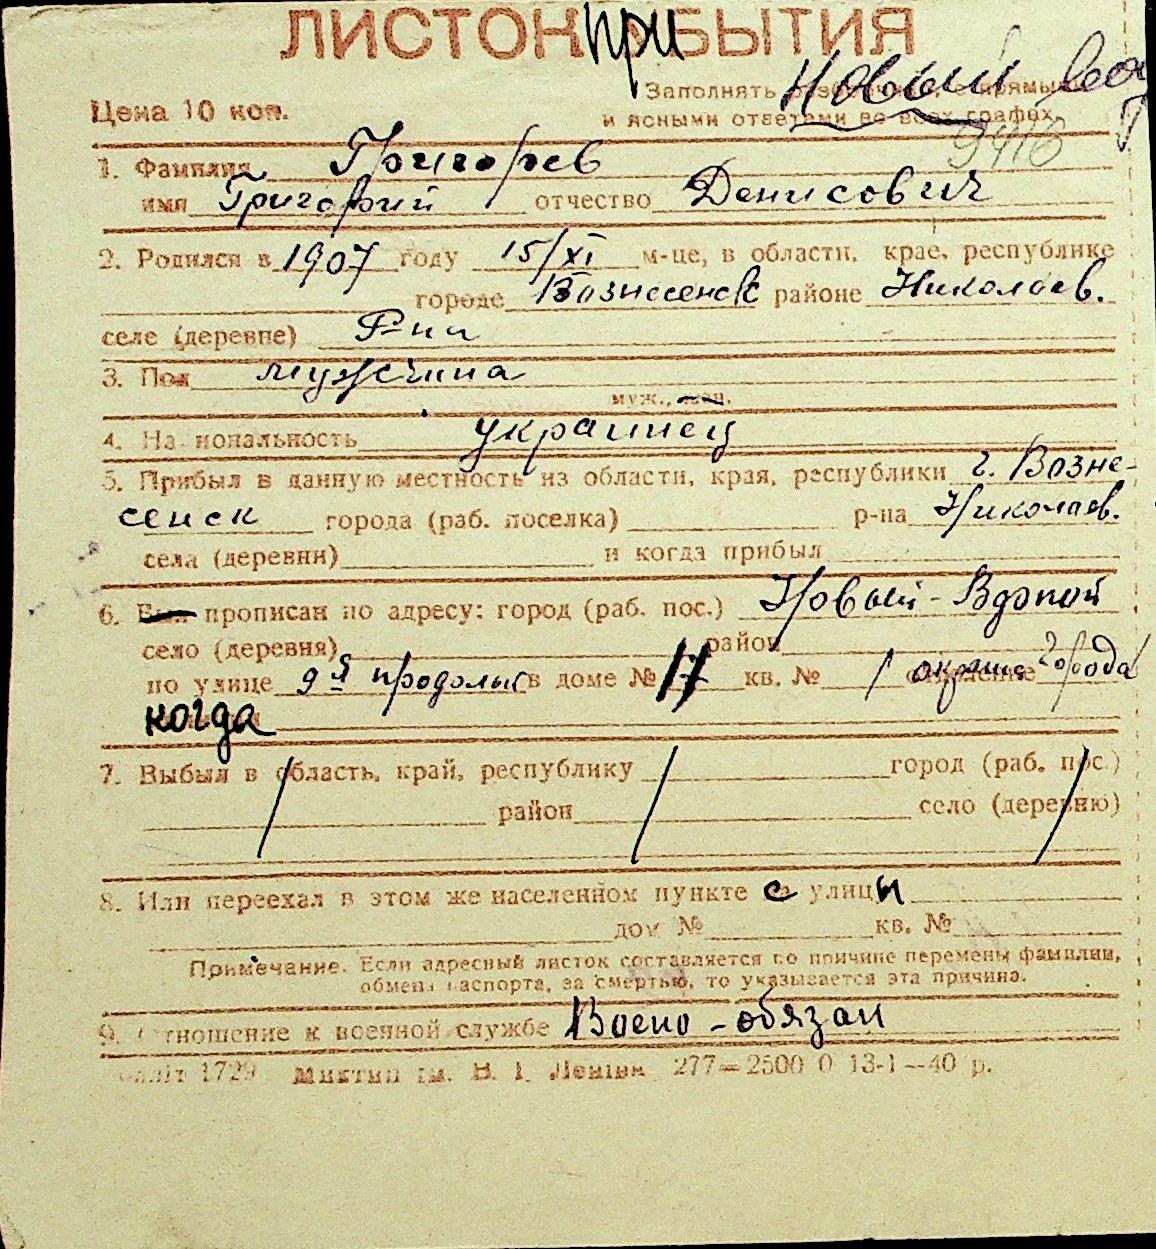 ЛИСТОК ПРИБЫТИЯ
Новый
Заполнять
Цена 10 коп.
и ясными ответами во всех графах
9416
1. Фамилия Григорев
имя Григорий отчество Денисович
2. Родился в 1907 году 15/XI м-це, в области, крае, республике
городе Вознесенск районе Николаев.
селе (деревне) Р-на
3. Пол мужчина
муж., жен.
4. Национальность украинец
5. Прибыл в данную местность из области, края, республики г. Возне-
сенск города (раб. поселка) р-на Николаев.
села (деревни) и когда прибыл
6. прописан по адресу: город (раб. пос.) Новый-Вдопой
село (деревня) район
по улице 9я продольн в доме № 17 кв. № города
когда
7. Выбыл в область, край, республику город (раб. пос.)
район село (деревню)
8. Или переехал в этом же населенном пункте с улицы
дом № кв. №
Примечание. Если адресный листок составляется по причине перемены фамилии,
обмена паспорта, за смертью, то указывается эта причина.
9. Отношение к военной службе Воено-обязан
1729 им. В. І. Леніна 277—2500 0 13-1—40 р.